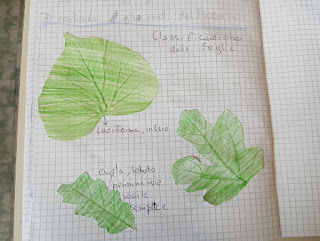 Classificazione
delle foglie
cuoriforme, intero
ovale, lobato
penninervie
sessile
semplice